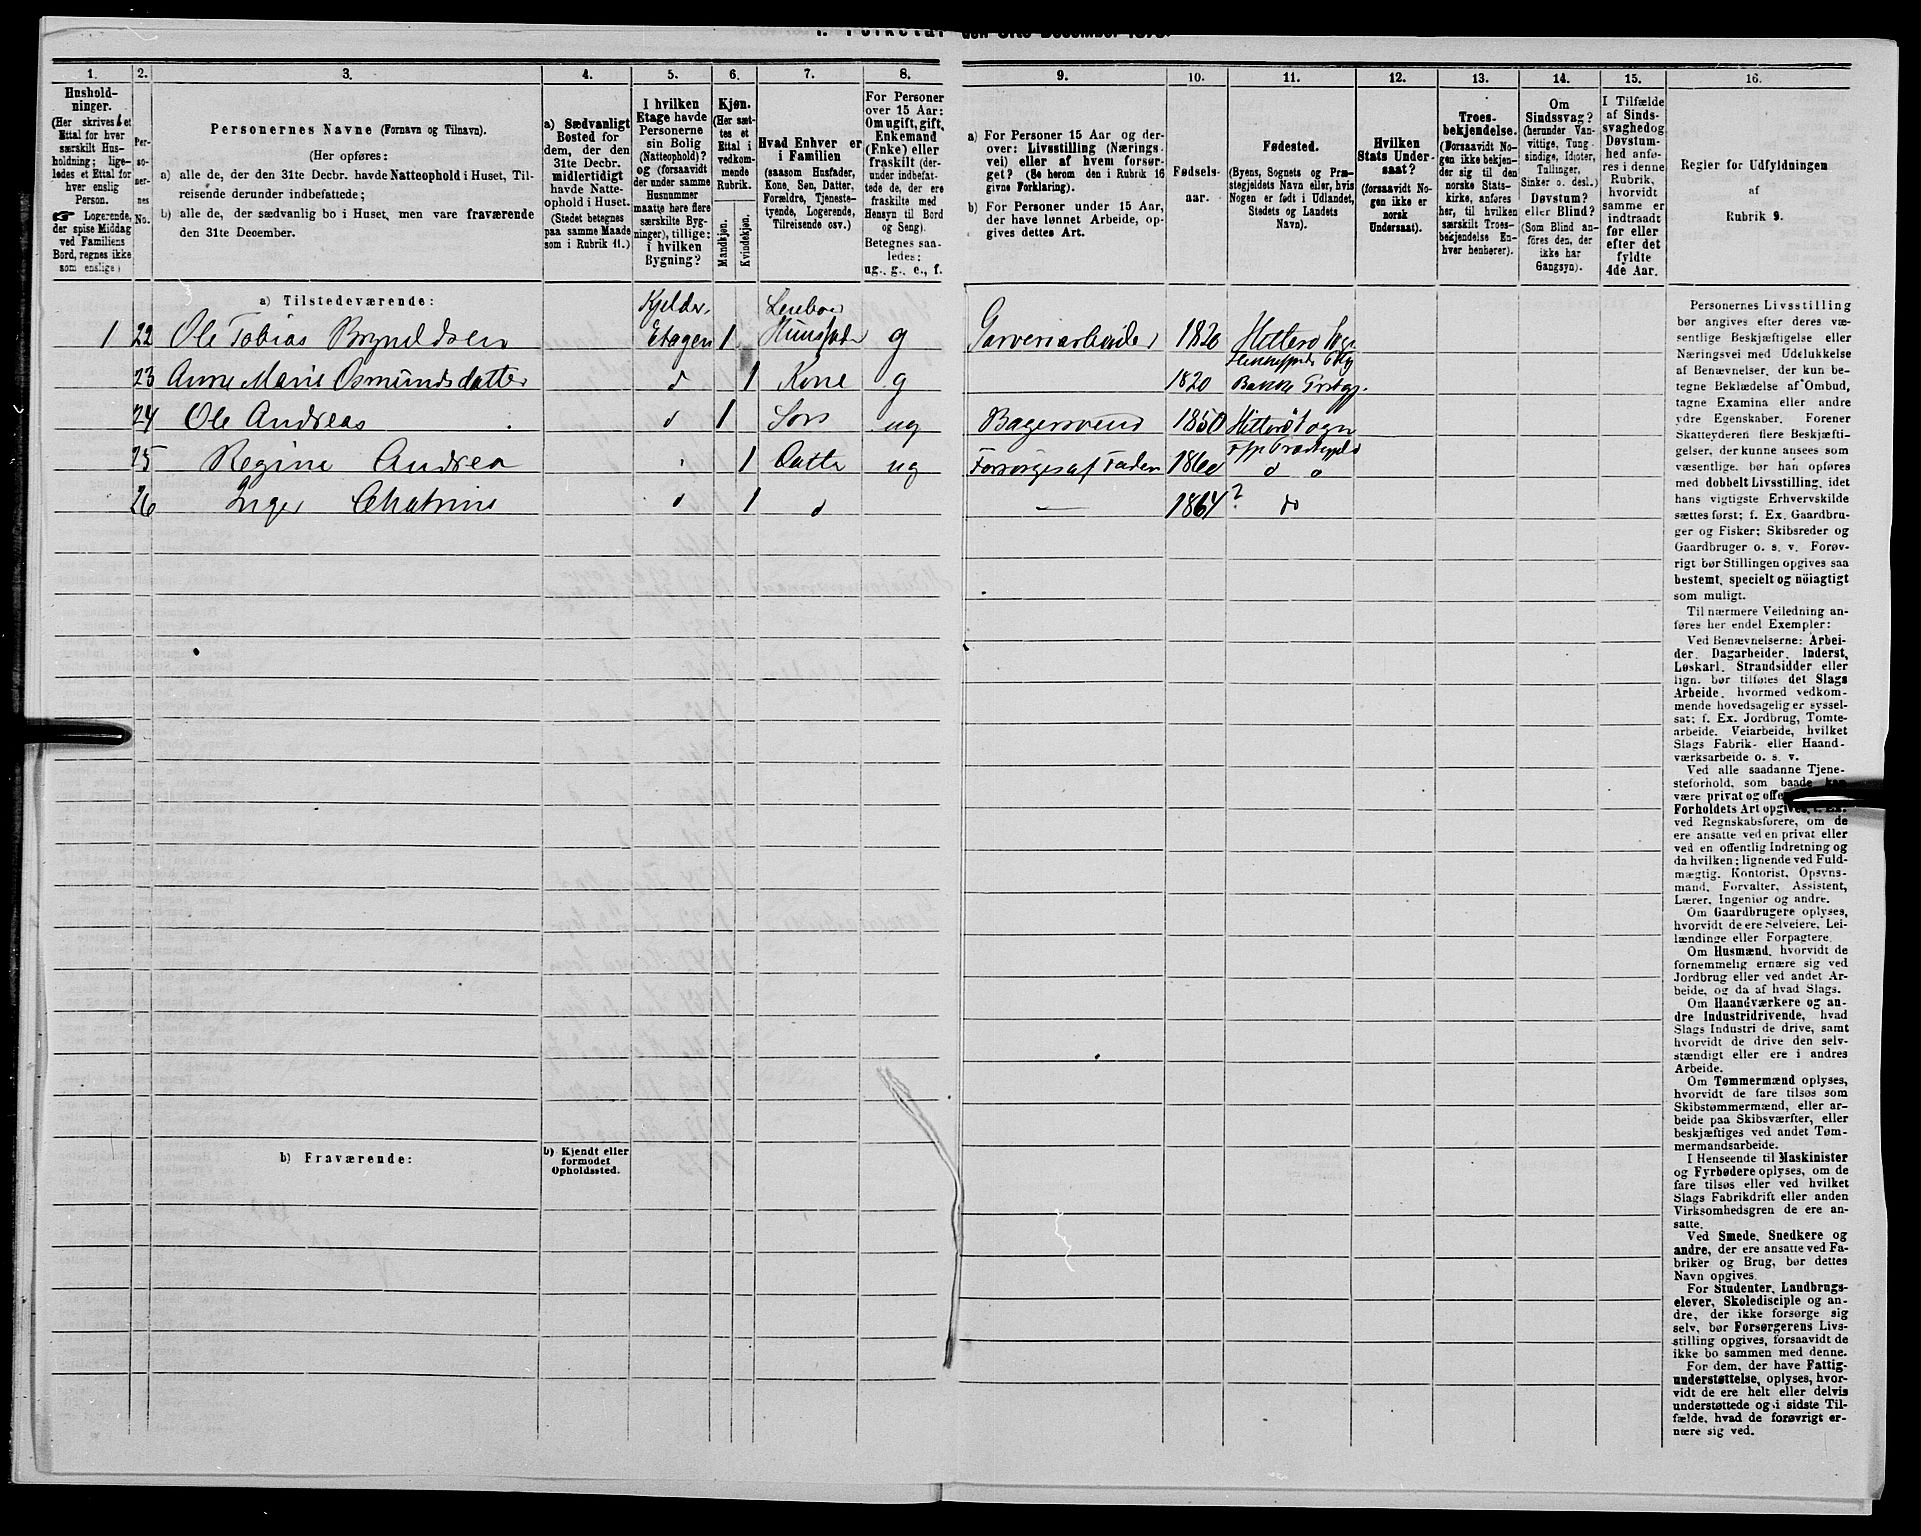 1. Folketal den 31te December 1875.
1.
2.
3.
4.
5.
6.
7.
8.
Hushold-
ninger.
(Her skrives et
Ettal for hver
særskilt Hus-
holdning; lige-
ledes et Ettal for
hver enslig
Person.
☛ Logerende,
der spise Middag
ved Familiens
Bord, regnes ikke
som enslige)
Per-
so-
ner-
nes
No.
Personernes Navne (Fornavn og Tilnavn).
(Her opføres:
a) alle de, der den 31te Decbr. havde Natteophold i Huset, Til-
reisende derunder indbefattede;
b) alle de, der sædvanlig bo i Huset, men vare fraværende
den 31te December.
a) Sædvanligt
Bosted for
dem, der den
31te Decbr.
midlertidigt
havde Natte-
ophold i Huset.
(Stedet betegnes
paa samme Maade
som i Rubrik 11.)
I hvilken
Etage havde
Personerne
sin Bolig
(Natteophold)?
og (forsaavidt
der under samme
Husnummer
maatte høre flere
særskilte Byg-
ninger), tillige:
i hvilken
Bygning?
Kjøn.
(Her sæt-
tes et
Ettal i
vedkom-
mende
Rubrik.
Mandkjøn.
Kvindekjøn.
Hvad Enhver er
i Familien
(saasom Husfader,
Kone, Søn, Datter,
Forældre, Tjeneste-
tyende, Logerende,
Tilreisende osv.)
For Personer
over 15 Aar:
Om ugift, gift,
Enkemand
(Enke) eller
fraskilt (der-
under indbefat-
tede de, der ere
fraskilte med
Hensyn til Bord
og Seng).
Betegnes saa-
ledes:
ug., g., e., f.
a) Tilstedeværende:
Kjelder- Leieboer
1 22 Ole Tobias Bryneldsen Etagen 1 Huusfader g
23 Anne Marie Osmundsdatter d 1 Kone g
24 Ole Andreas d 1 Søn ug
25 Regine Andrea 1 Datter ug
26 Inger Chatrine d 1 d
b) Fraværende:
b) Kjendt eller
formodet
Opholdssted.
9.
10.
11.
12.
13.
14.
15.
16.
a) For Personer 15 Aar og der-
over: Livsstilling (Nærings-
vei) eller af hvem forsør-
get? (Se herom den i Rubrik 16
givne Forklaring).
b) For Personer under 15 Aar,
der have lønnet Arbeide, op-
gives dettes Art.
Fødsels-
aar.
Fødested.
(Byens, Sognets og Præ-
stegjeldets Navn eller, hvis
Nogen er født i Udlandet,
Stedets og Landets
Navn).
Hvilken
Stats Under-
saat?
(forsaavidt No-
gen ikke er
norsk
Undersaat).
Troes-
bekjendelse.
(Forsaavidt No-
gen ikke bekjen-
der sig til den
norske Stats-
kirke, anføres
her, til hvilken
særskilt Troes-
bekjendelse En-
hver henhører).
Om
Sindssvag?
(herunder Van-
vittige, Tung-
sindige, Idioter,
Tullinger,
Sinker o. desl.)
Døvstum?
eller Blind?
(Som Blind an-
føres den, der
ikke har
Gangsyn).
I Tilfælde
af Sinds-
svaghed og
Døvstum-
hed anfø-
res i denne
Rubrik,
hvorvidt
samme er
indtraadt
før eller
efter det
fyldte
4de Aar.
Regler for Udfyldningen
af
Rubrik 9.
Garveriarbeider 1820 Hitterø Sogn
1820 Bakke Præstegj.
Bagersvend 1850 Hitterø Sogn
Forsørges af Faderen 1860 d d
— 1864? do
Personernes Livsstilling
bør angives efter deres væ-
sentlige Beskjæftigelse eller
Næringsvei med Udelukkelse
af Benævnelser, der kun be-
tegne Beklædelse af Ombud,
tagne Examina eller andre
ydre Egenskaber. Forener
Skatteyderen flere Beskjæfti-
gelser, der kunne ansees som
væsentlige, bør han opføres
med dobbelt Livsstilling, idet
hans vigtigste Erhvervskilde
sættes først; f. Ex. Gaardbru-
ger og Fisker; Skibsreder og
Gaardbruger o. s. v. Forøv-
rigt bør Stillingen opgives saa
bestemt, specielt og nöiagtigt
som muligt.
Til nærmere Veiledning an-
føres her endel Exempler:
Ved Benævnelserne: Arbei-
der, Dagarbeider, Inderst,
Løskarl, Strandsidder eller
lign. bør tilføies det Slags
Arbeide, hvormed vedkom-
mende hovedsagelig er syssel-
sat; f. Ex. Jordbrug, Tomte-
arbeide, Veiarbeide, hvilket
Slags Fabrik- eller Haand-
værksarbeide o. s. v.
Ved alle saadanne Tjene-
steforhold, som baade kan
være privat og offe
Forholdets Art opgives, f. Ex.
ved Regnskabsførere, om de
ere ansatte ved en privat eller
ved en offentlig Indretning og
da hvilken; lignende ved Fuld-
mægtig, Kontorist, Opsyns-
mand, Forvalter, Assistent,
Lærer, Ingeniør og andre.
Om Gaardbrugere oplyses,
hvorvidt de ere Selveiere, Lei-
lændinge eller Forpagtere.
Om Husmænd, hvorvidt de
fornemmelig ernære sig ved
Jordbrug eller ved andet Ar-
beide, og da af hvad Slags.
Om Haandværkere og an-
dre Industridrivende, hvad
Slags Industri de drive, samt
hvorvidt de drive den selv-
stændigt eller ere i andres
Arbeide.
Om Tømmermænd oplyses,
hvorvidt de fare tilsøs som
Skibstømmermænd, eller ar-
beide paa Skibsværfter, eller
beskjæftiges ved andet Tøm-
mermandsarbeide.
I Henseende til Maskinister
og Fyrbødere oplyses, om de
fare tilsøs eller ved hvilket
Slags Fabrikdrift eller anden
Virksomhedsgren de ere an-
satte.
Ved Smede, Snedkere og
andre, der ere ansatte ved Fa-
briker og Brug, bør dettes
Navn opgives.
For Studenter, Landbrugs-
elever, Skoledisciple og an-
dre, der ikke forsørge sig
selv, bør Forsørgerens Livs-
stilling opgives, forsaavidt de
ikke bo sammen med denne.
For dem, der have Fattig-
understøttelse, oplyses, hvor-
vidt de ere helt eller delvis
understøttede og i sidste Til-
fælde, hvad de forøvrigt er-
nære sig ved.